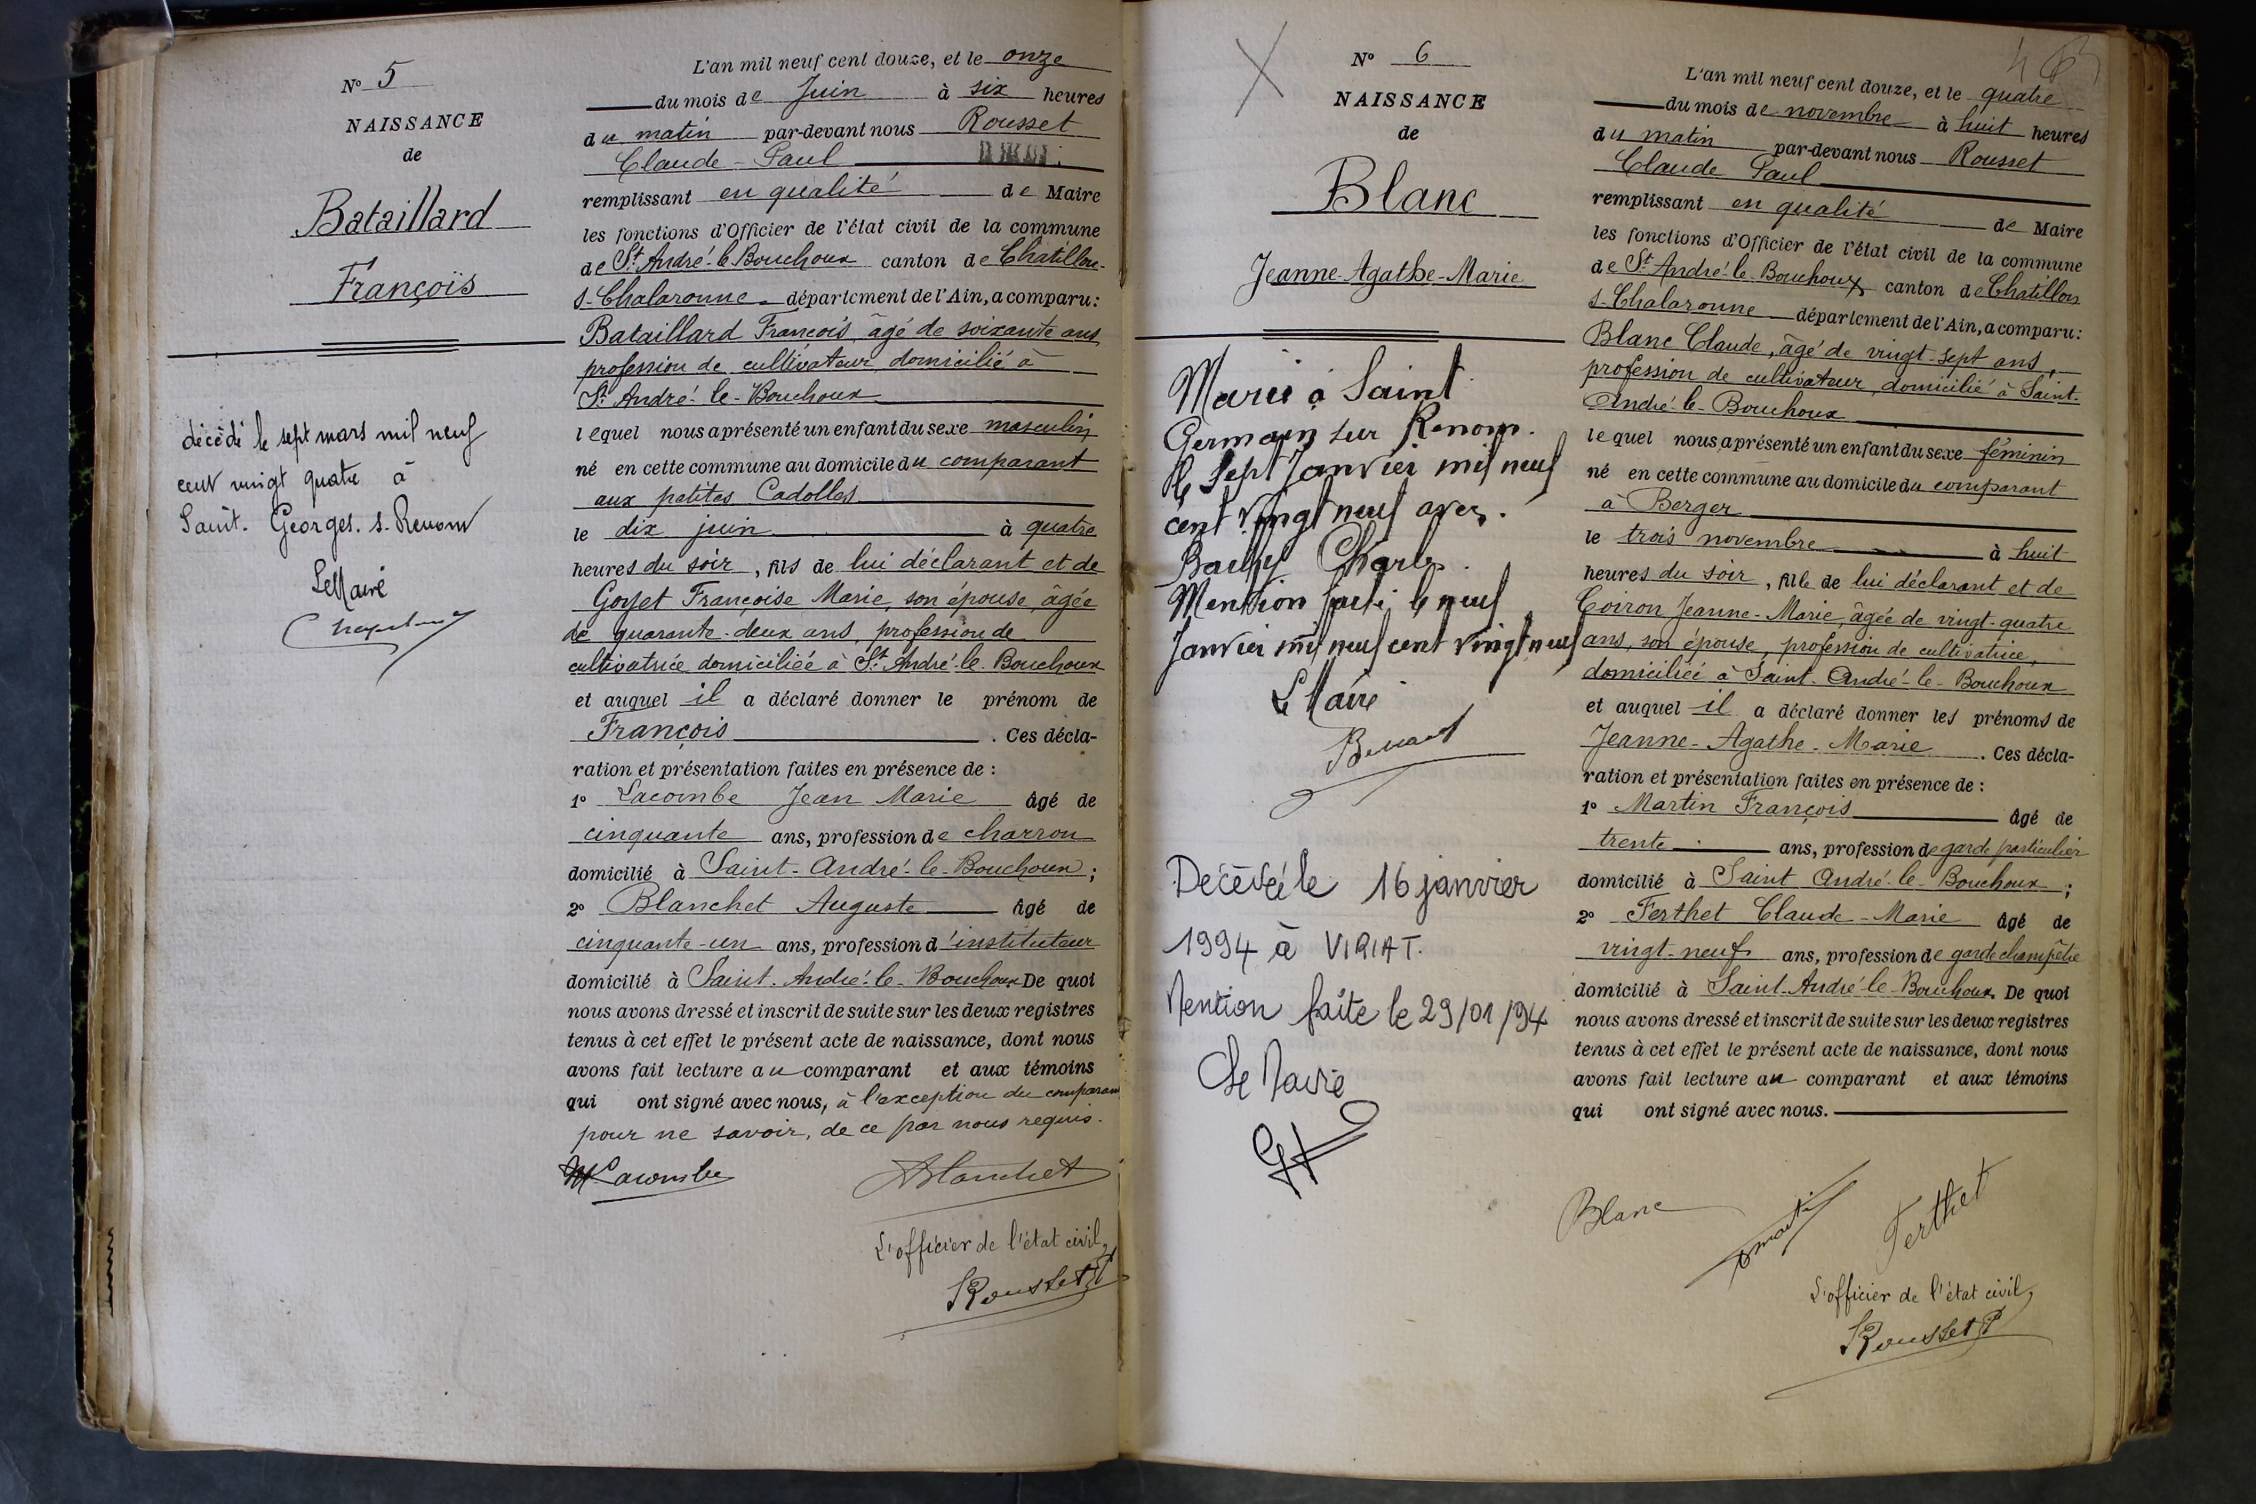 N° 5
NAISSANCE
de
Bataillard
François
décédé le sept mars mil neuf
cent vingt quatre à
Saint. Georges. s. Renom
Le Maire
L'an mil neuf cent douze, et le onze
du mois de Juin à six heures
du matin par-devant nous Rousset
Claude-Paul
remplissant en qualité de Maire
les fonctions d'Officier de l'état civil de la commune
de St. André-le-Bouchoux canton de Châtillon-
s-Chalaronne département de l'Ain, a comparu :
Bataillard François, âgé de soixante ans,
profession de cultivateur, domicilié à
St. André-le-Bouchoux
lequel nous a présenté un enfant du sexe masculin
né en cette commune au domicile du comparant
aux petites Cadolles
le dix juin à quatre
heures du soir, fils de lui déclarant et de
Goyet Françoise Marie, son épouse, âgée
de quarante-deux ans, profession de
cultivatrice domiciliée à St. André-le-Bouchoux
et auquel il a déclaré donner le prénom de
François. Ces décla-
ration et présentation faites en présence de :
1° Lacombe Jean Marie âgé de
cinquante ans, profession de charron
domicilié à Saint-André-le-Bouchoux ;
2° Blanchet Auguste âgé de
cinquante-un ans, profession d'instituteur
domicilié à Saint-André-le-Bouchoux De quoi
nous avons dressé et inscrit de suite sur les deux registres
tenus à cet effet le présent acte de naissance, dont nous
avons fait lecture au comparant et aux témoins
qui ont signé avec nous, à l'exception du comparant
pour ne savoir, de ce par nous requis.
Lacombe ABlanchet
L'officier de l'état civil,
Rousset P
N° 6
NAISSANCE
de
Blanc
Jeanne-Agathe-Marie
Mariée à Saint
Germain sur Renom.
le sept janvier mil neuf
cent vingt neuf avec.
Bailly Charles.
Mention faite le neuf
Janvier mil neuf cent vingt neuf
Le Maire
Décédée le 16 janvier
1994 à VIRIAT.
Mention faite le 29/01/94
Le Maire
L'an mil neuf cent douze, et le quatre
du mois de novembre à huit heures
du matin par-devant nous Rousset
Claude Paul
remplissant en qualité de Maire
les fonctions d'Officier de l'état civil de la commune
de St. André-le-Bouchoux canton de Châtillon
s-Chalaronne département de l'Ain, a comparu :
Blanc Claude, âgé de vingt-sept ans,
profession de cultivateur, domicilié à Saint-
André-le-Bouchoux
lequel nous a présenté un enfant du sexe féminin
né en cette commune au domicile du comparant
à Berger
le trois novembre à huit
heures du soir, fille de lui déclarant et de
Coiron Jeanne-Marie, âgée de vingt-quatre
ans, son épouse, profession de cultivatrice,
domiciliée à Saint-André-le-Bouchoux
et auquel il a déclaré donner les prénoms de
Jeanne-Agathe-Marie. Ces décla-
ration et présentation faites en présence de :
1° Martin François âgé de
trente ans, profession de garde particulier
domicilié à Saint André-le-Bouchoux ;
2° Ferthet Claude-Marie âgé de
vingt-neuf ans, profession de garde champêtre
domicilié à Saint-André-le-Bouchoux. De quoi
nous avons dressé et inscrit de suite sur les deux registres
tenus à cet effet le présent acte de naissance, dont nous
avons fait lecture au comparant et aux témoins
qui ont signé avec nous.
Blanc Martin Ferthet
L'officier de l'état civil,
Rousset P